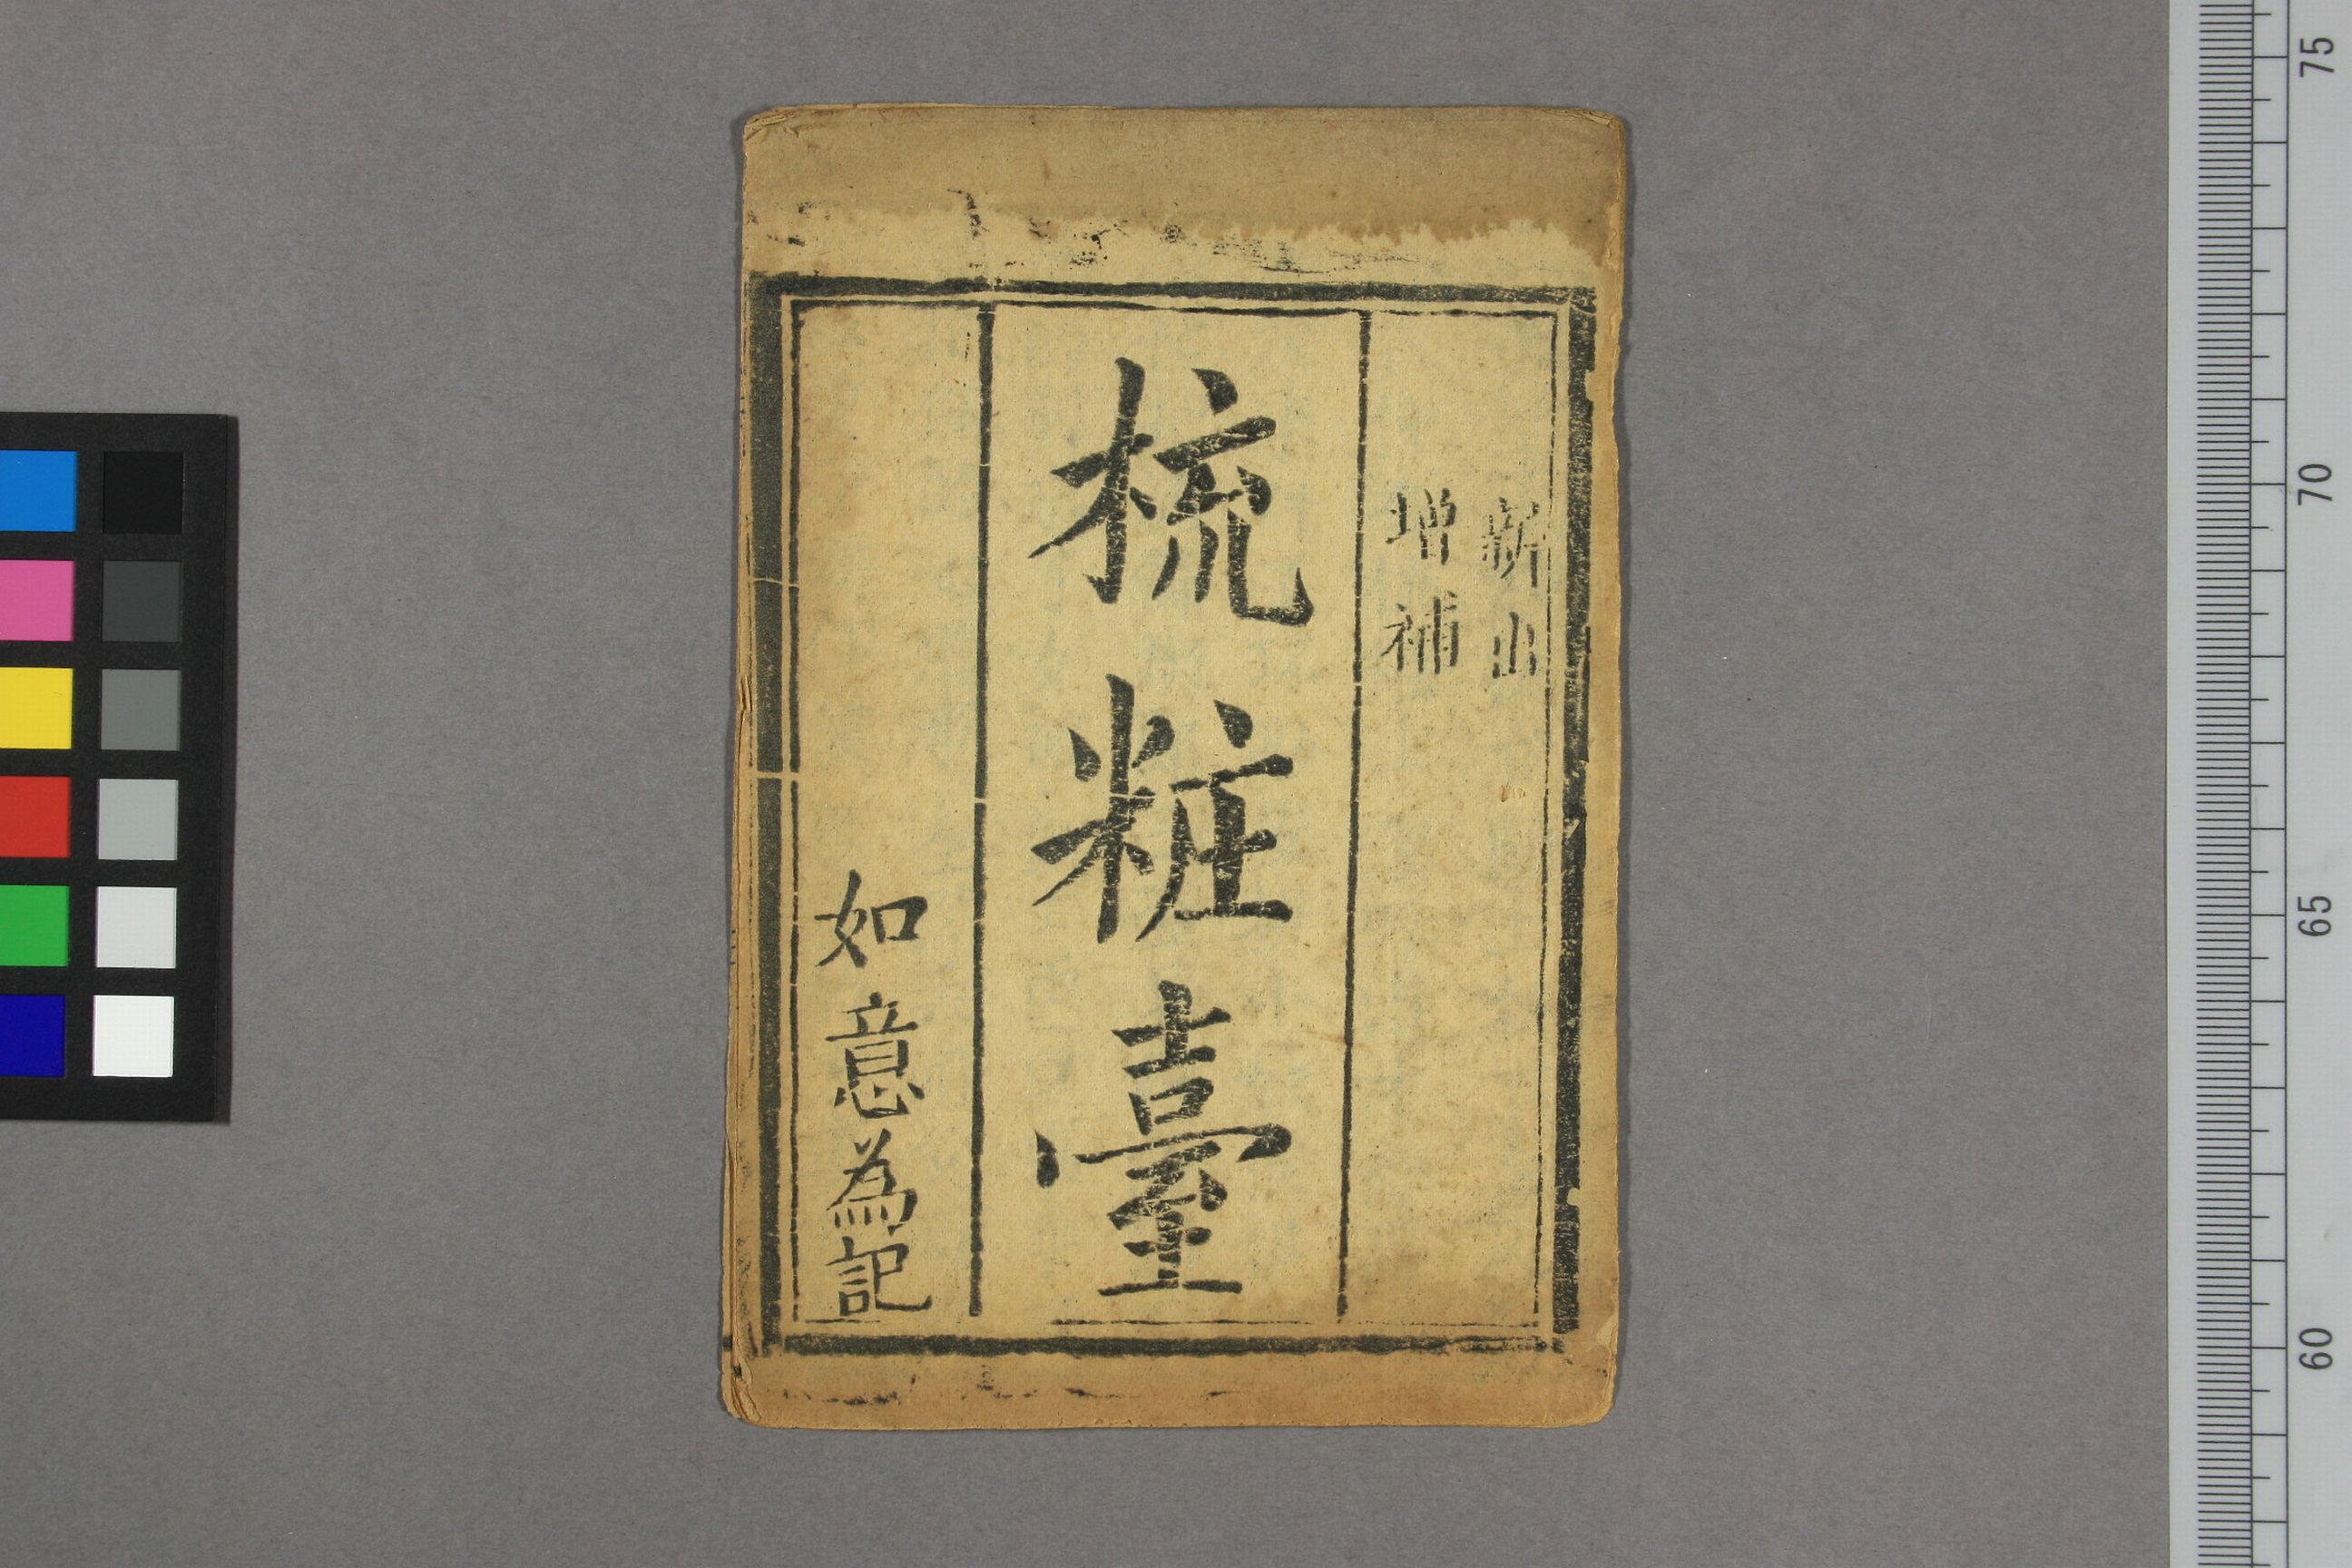 新出
增補
梳粧臺
如意為記
75
70
65
60